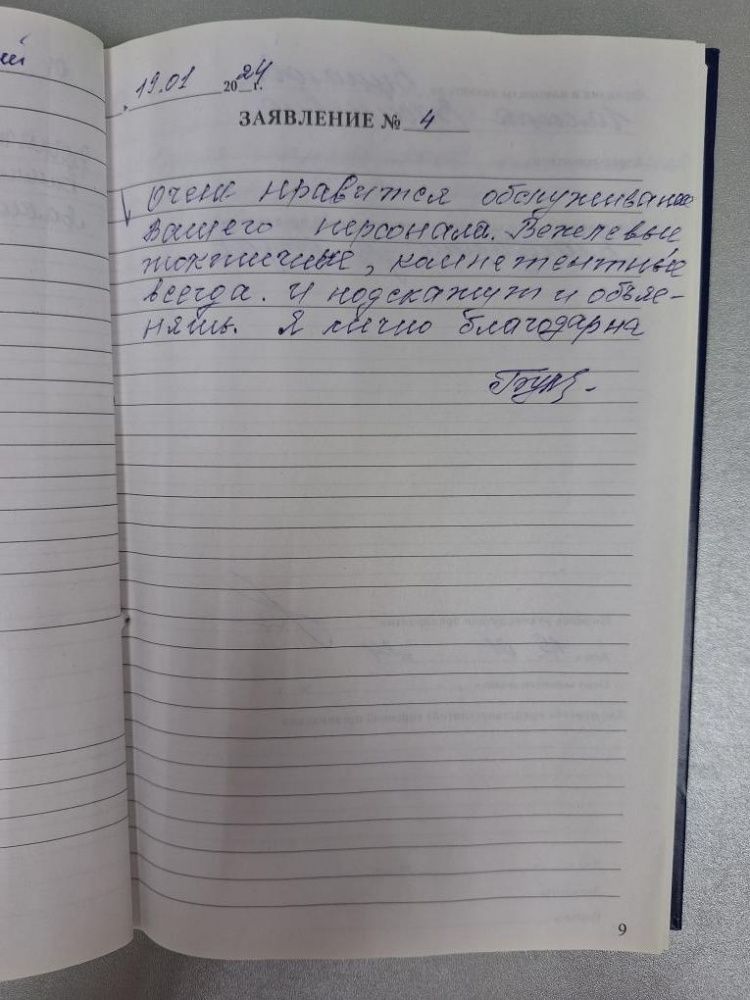 19.01 2024 г.
ЗАЯВЛЕНИЕ № 4
Очень нравится обслуживание
Вашего персонала. Вежлевые
, кампетентные
всегда. И подскажут и объяс-
нять. Я лично благодарна
9